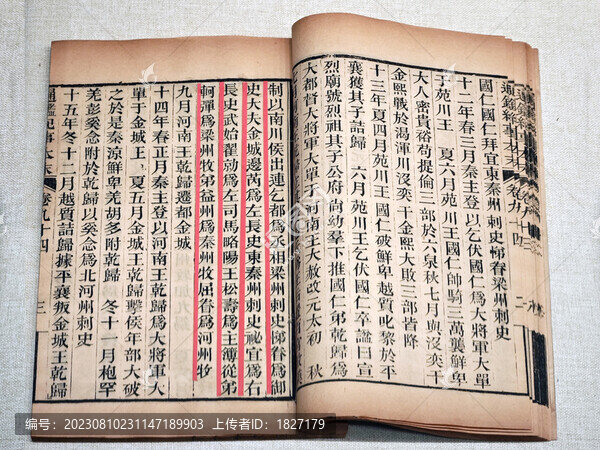 通鑑紀事本末 卷九十四 二
國仁國仁拜宜東秦州刺史悌眷梁州刺史
十二年春三月秦主登以乞伏國仁爲大將軍大單
于苑川王 夏六月苑川王國仁師騎三萬襲鮮卑
大人密貴裕苟提倫三部於六泉秋七月與沒奕于
金熙戰於渴渾川沒奕于金熙大敗三部皆降
十三年夏四月苑川王國仁破鮮卑越質叱黎於平
襄獲其子詰歸 六月苑川王乞伏國仁卒諡曰宣
烈廟號烈祖其子公府尚幼羣下推國仁弟乾歸爲
大都督大將軍大單于河南王大赦改元太初 秋
制以南川侯出連乞都爲丞相梁州刺史悌眷爲御
史大夫金城邊芮爲左長史東秦州刺史祕宜爲右
長史武始翟勍爲左司馬略陽王松壽爲主簿從弟
軻彈爲梁州牧弟益州爲秦州牧屈眷爲河州牧
九月河南王乾歸遷都金城
十四年春正月秦主登以河南王乾歸爲大將軍大
單于金城王 夏五月金城王乾歸擊侯年部大破
之於是秦涼鮮卑羌胡多附乾歸 冬十一月枹罕
羌彭奚念附於乾歸以奚念爲北河州刺史
十五年冬十二月越質詰歸據平襄叛金城王乾歸
通鑑紀事本末 卷九十四 三
编号:20230810231147189903 上传者ID:1827179